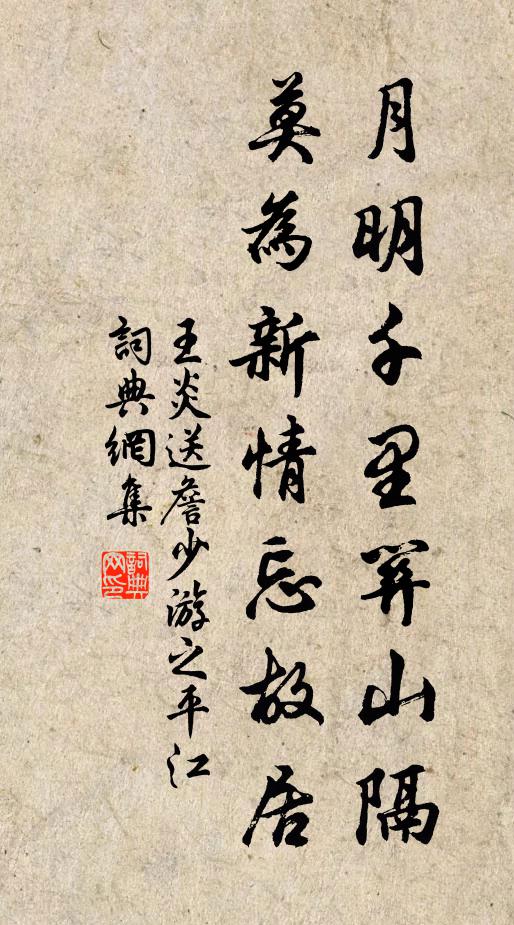 月明千里関山隔
莫為新情忘故居
王炎送詹少游之平江
詞典網集
詞典网印